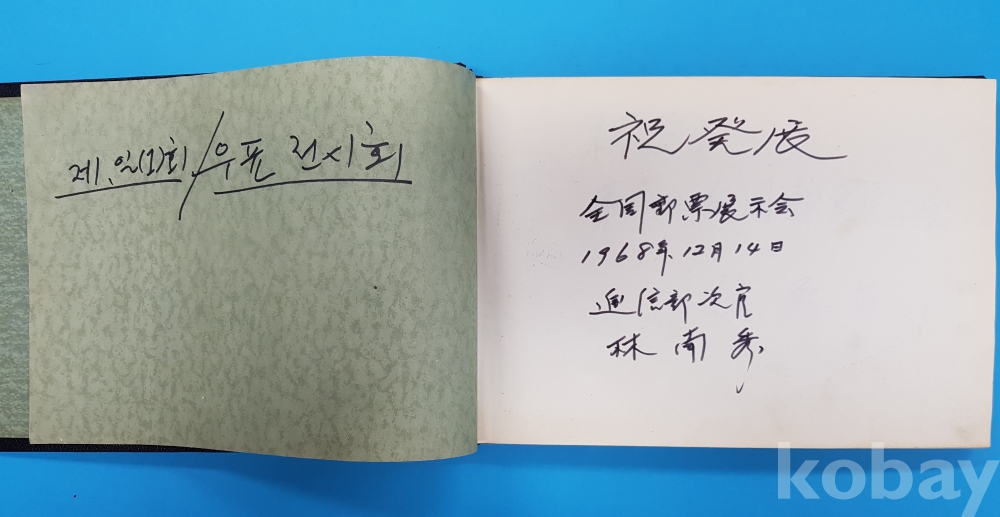 제.일(1)회/우표 전시회
祝 發展
全国郵票展示会
1968年. 12月 14日
逓信部次官
林 南 秀
kobay